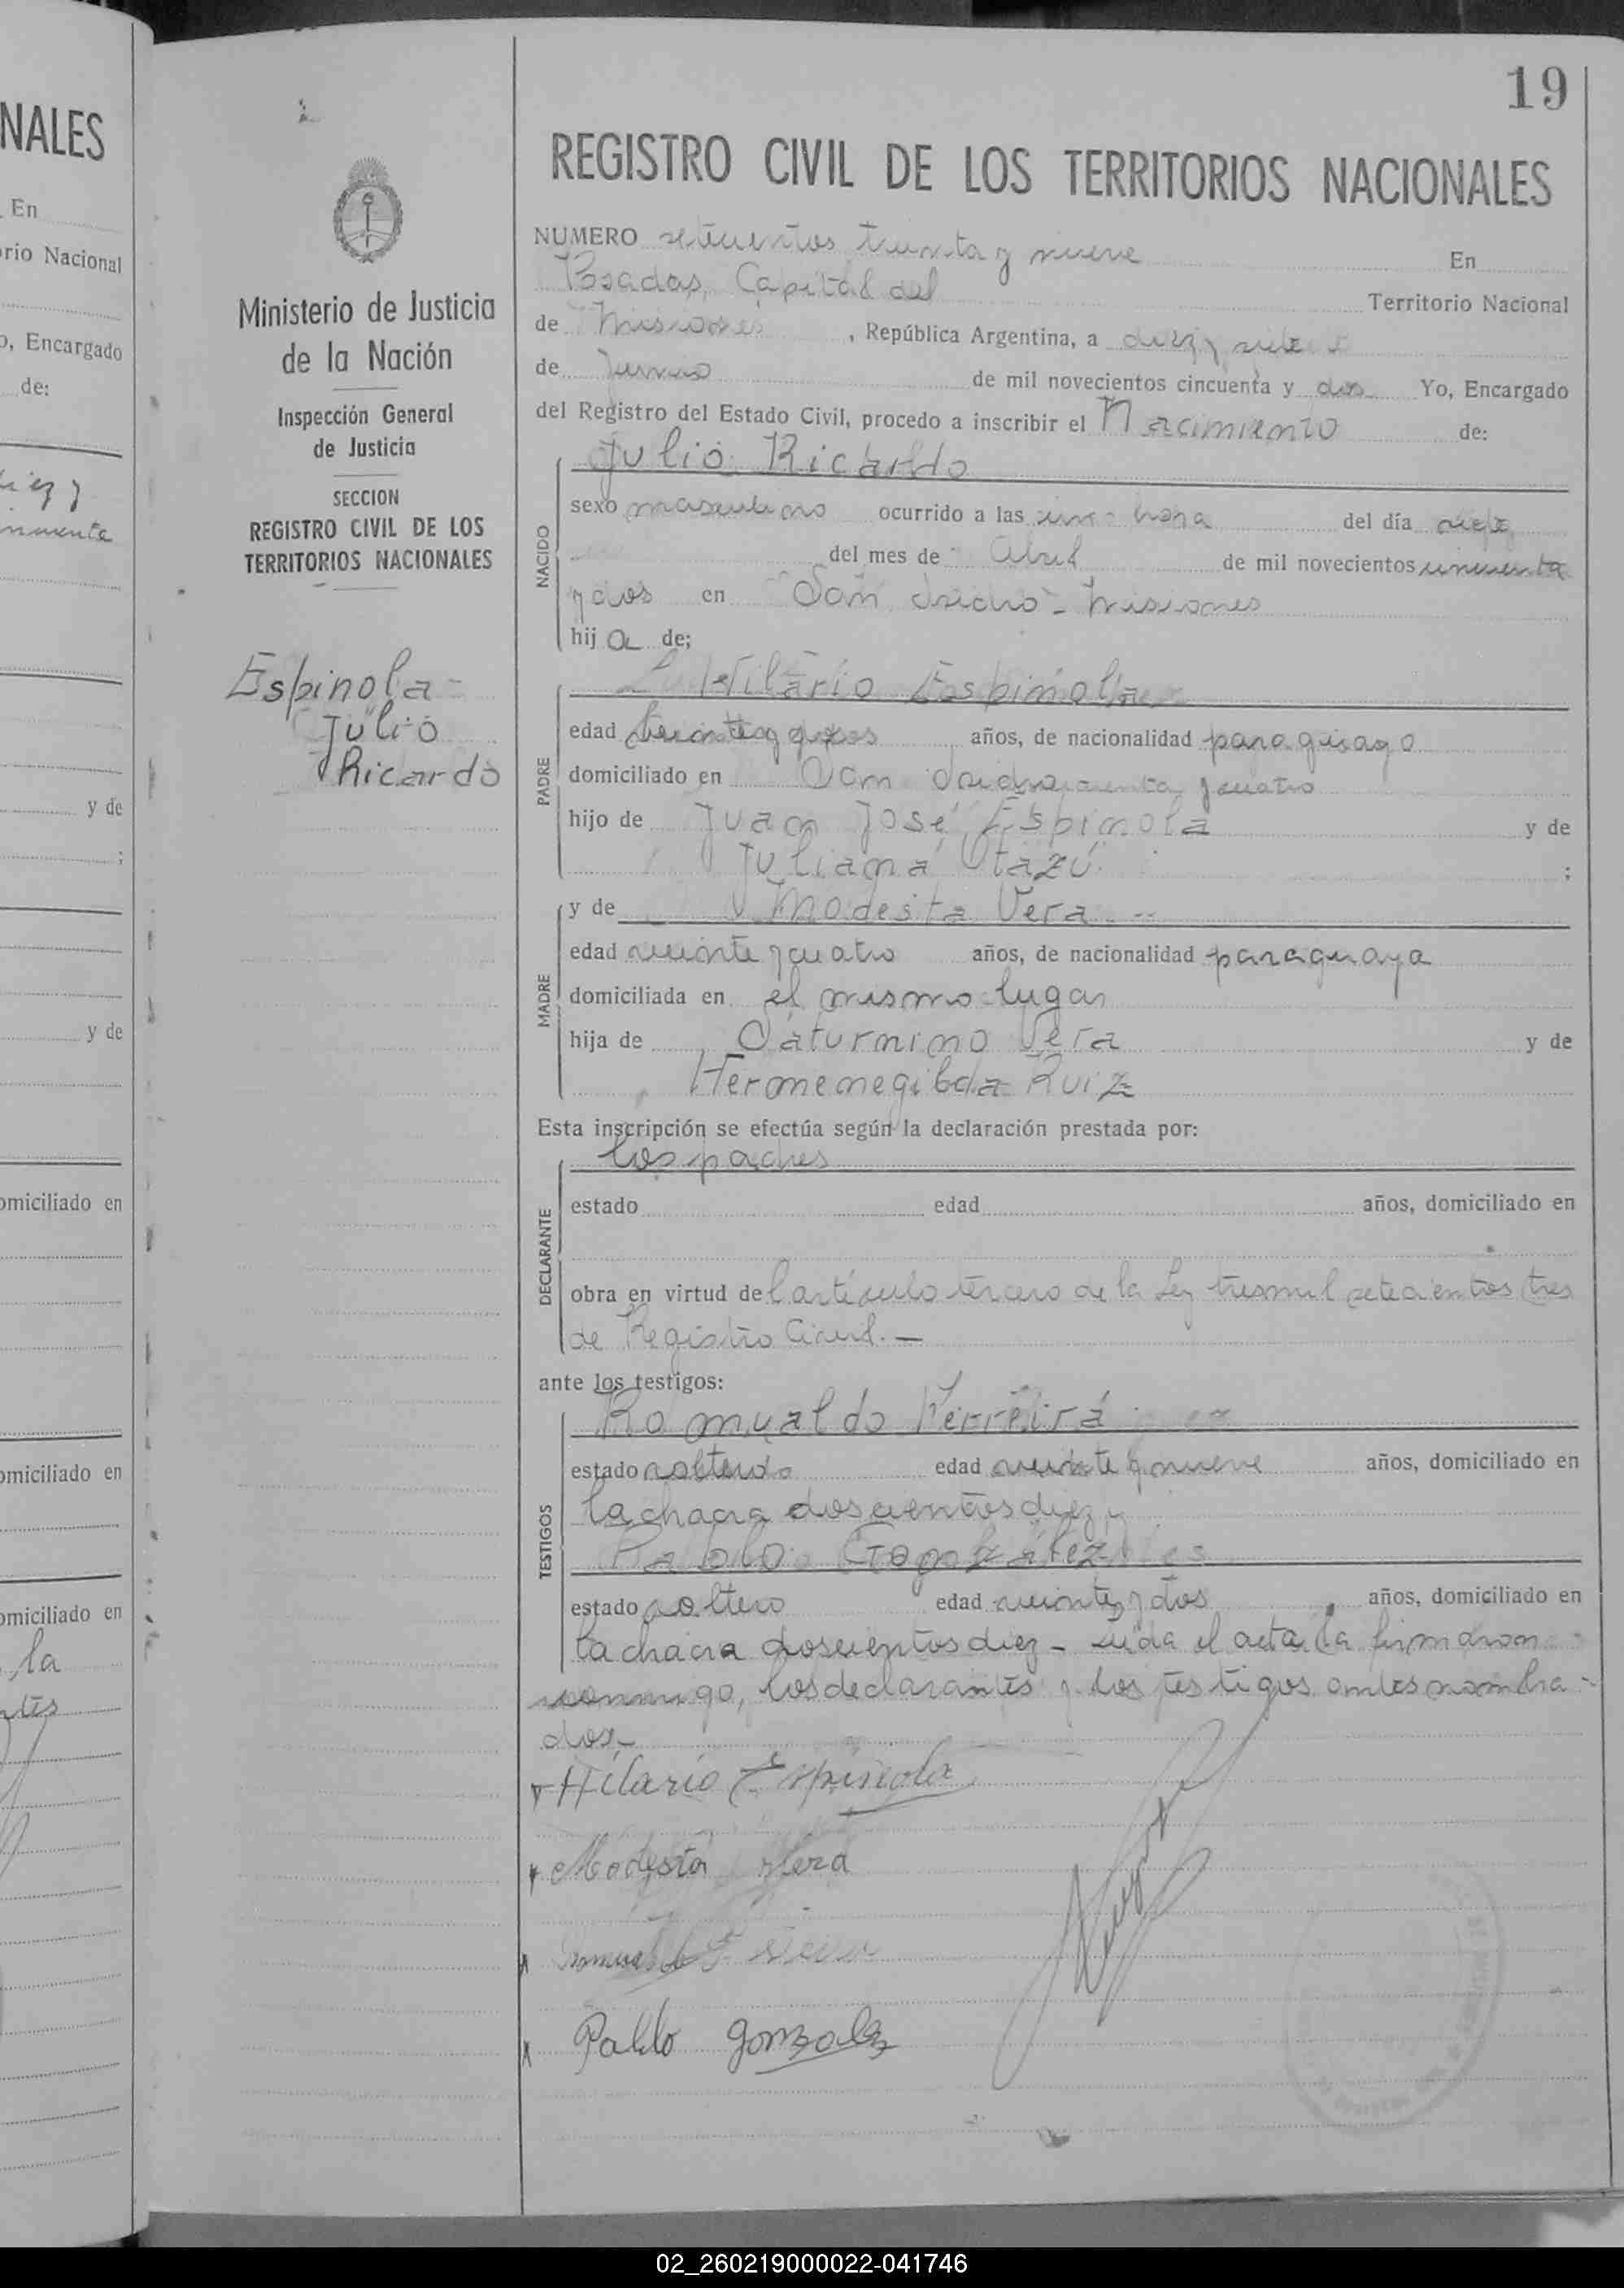 NALES
En
rio Nacional
o, Encargado
de:
y de
;
y de
omiciliado en
omiciliado en
omiciliado en
la
19
Ministerio de Justicia
de la Nación
Inspección General
de Justicia
SECCION
REGISTRO CIVIL DE LOS
TERRITORIOS NACIONALES
Espinola -
Julio
Ricardo
REGISTRO CIVIL DE LOS TERRITORIOS NACIONALES
NUMERO setecientos treinta y nueve En
Posadas, Capital del Territorio Nacional
de Misiones, República Argentina, a diez y siete
de Junio de mil novecientos cincuenta y dos Yo, Encargado
del Registro del Estado Civil, procedo a inscribir el Nacimiento de:
NACIDO
Julio Ricardo
sexo masculino ocurrido a las hora del día siete
del mes de Abril de mil novecientos cincuenta
y dos en San Isidro - Misiones
hij o de;
PADRE
Hilario Espinola
edad treinta y años, de nacionalidad paraguayo
domiciliado en San Isidro
hijo de Juan José Espinola y de
Juliana Otazú ;
MADRE
y de Modesta Vera
edad veinte y cuatro años, de nacionalidad paraguaya
domiciliada en el mismo lugar
hija de Saturnino Vera y de
Hermenegilda Ruiz
Esta inscripción se efectúa según la declaración prestada por:
DECLARANTE
los padres
estado edad años, domiciliado en
obra en virtud del artículo tercero de la Ley tresmil setecientos tres
de Registro Civil. —
ante los testigos:
TESTIGOS
Romualdo Ferreira
estado soltero edad veinte y nueve años, domiciliado en
la chacra doscientos diez y
Pablo González
estado soltero edad veinte y dos años, domiciliado en
la chacra doscientos diez - Leída el acta la firmaron
conmigo, los declarantes y los testigos antes nombra-
dos.-
Hilario Espinola
Modesta Vera
Pablo gonzalez
02_260219000022-041746